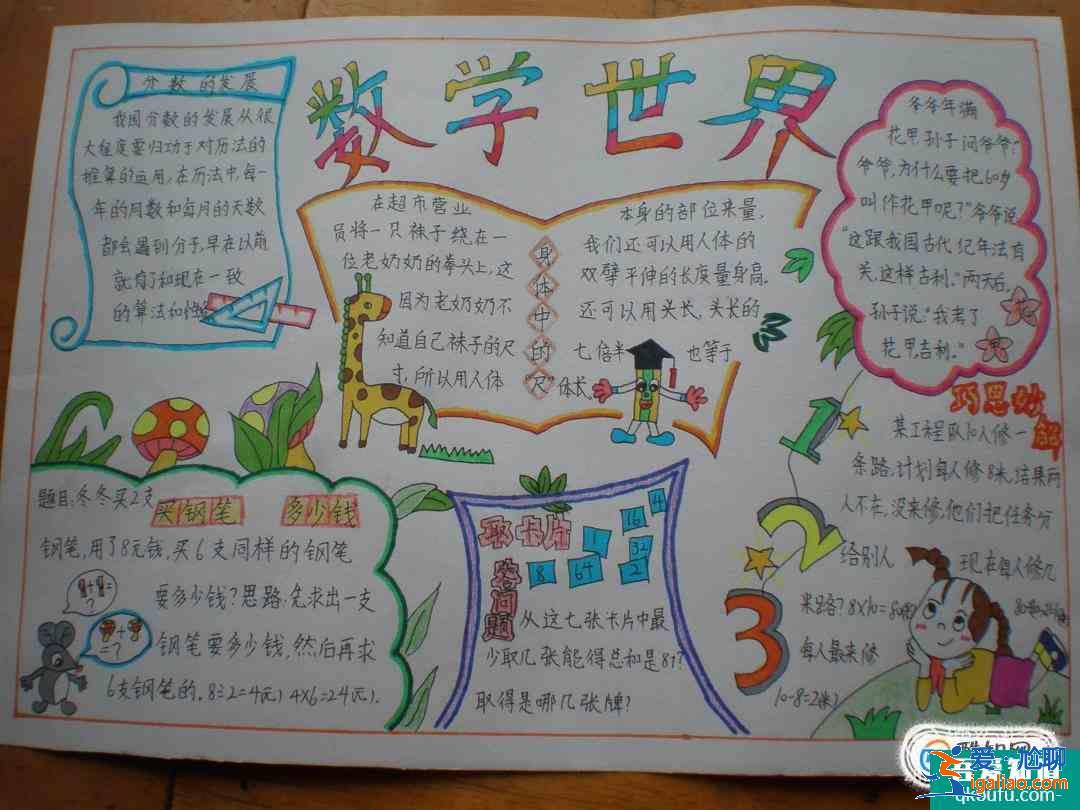 数学世界
分数的发展
我国分数的发展从很
大程度要归功于对历法的
推算的运用,在历法中,每一
年的月数和每月的天数
都会遇到分子,早在以前
就有了和现在一致
的算法和
在超市营业
员将一只袜子绕在一
位老奶奶的拳头上,这
因为老奶奶不
知道自己袜子的尺
寸,所以用人体
身体中的“尺”
本身的部位来量,
我们还可以用人体的
双臂平伸的长度量身高.
还可以用头长,头长的
七倍半 也等于
体长.
爷爷年满
花甲,孙子问爷爷:“
爷爷,为什么要把60岁
叫作花甲呢?”爷爷说
“这跟我国古代纪年法有
关,这样吉利.”两天后,
孙子说:“我考了
花甲,吉利.”
题目:冬冬买2支
买钢笔 多少钱
钢笔,用了8元钱,买6支同样的钢笔
要多少钱?思路:先求出一支
钢笔要多少钱,然后再求
6支钢笔的. 8÷2=4(元) 4×6=24(元).
+ =?
+ =?
取卡片
答问题
1 16 4
8 64 32 2
从这七张卡片中最
少取几张能得总和是81?
取得是哪几张牌?
1
2
3
巧思妙解
某工程队10人修一
条路,计划每人修8米,结果两
人不在,没来修,他们把任务分
给别人 现在每人修几
米路?8×10=80(米)
每人最来修
10-8=2(米)
爱尬聊
igaliao.com
qkoufu.com